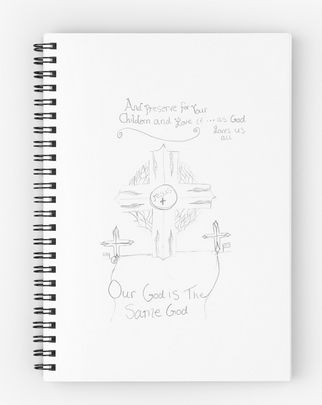 And Preserve for Your
Children and Love it --- as God
Loves us
all
Our God is The
Same God